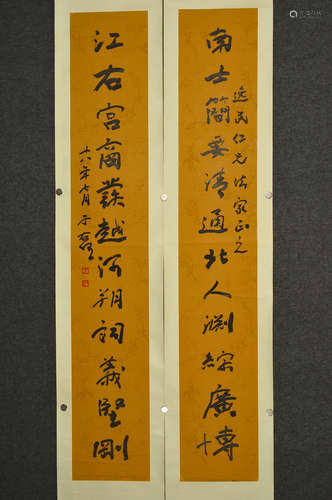 南士簡要清通北人淵綜廣博
逸民仁兄法家正之
江右宮商發越河朔詞義堅剛
十八年七月于右任